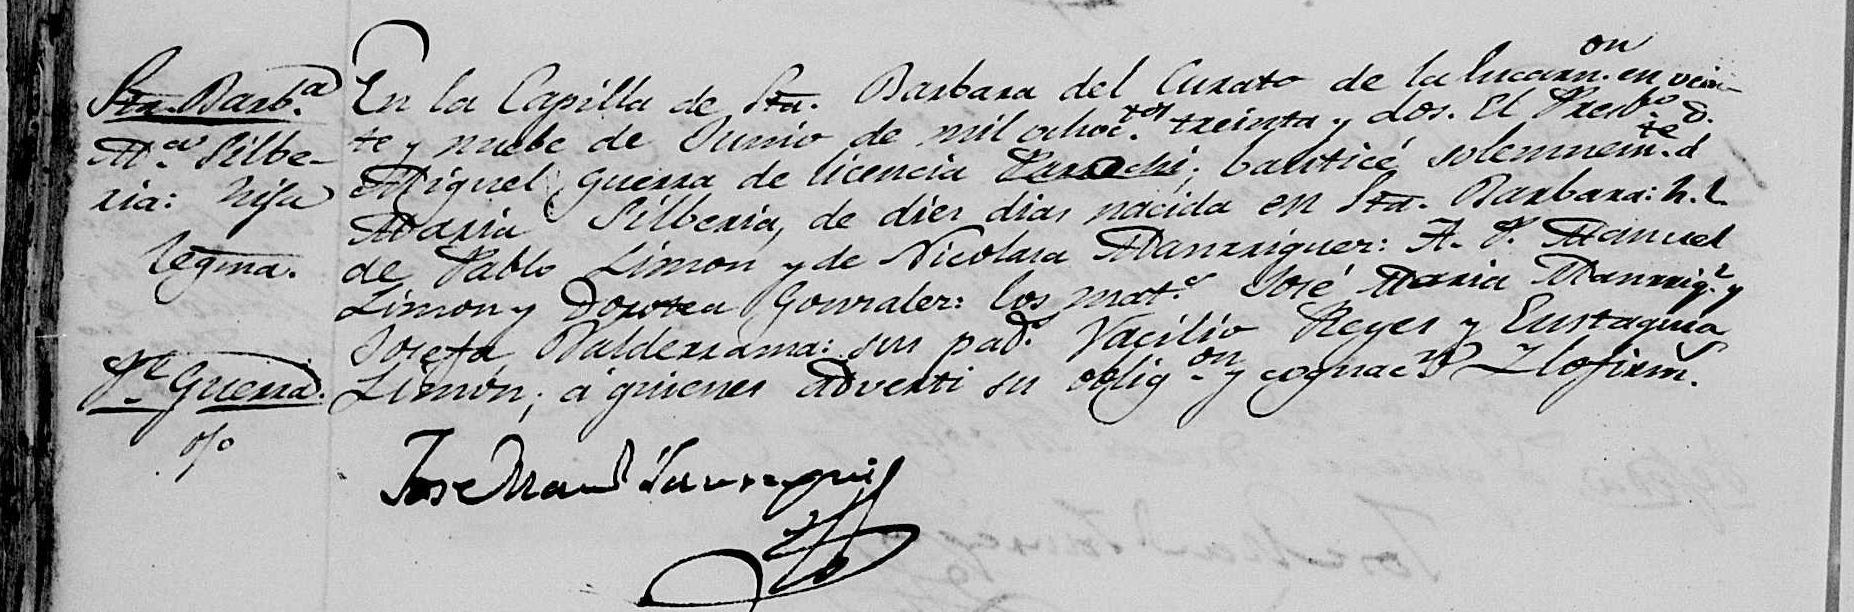 Sta. Barb.a
Ma. Silbe-
ria: hija
legma.
Pe. Guerra.
En la Capilla de Sta. Barbara del Curato de la Incarn.on en vein-
te y nuebe de Junio de mil ochoc.tos treinta y dos. El Presb.o D.
Miguel Guerra de licencia Parrochi; bauticé solemnem.te á
Maria Silberia, de dies dias nacida en Sta. Barbara: h. l.
de Pablo Limon y de Nicolasa Manrriquez: A. P. Manuel
Limon y Dorotea Gonzalez: los mat.s José Maria Manrriq.z y
Josefa Balderrama: sus pad.s Vacilio Reyes y Eustaquia
Limón; á quienes adverti su oblig.on y cognac.n Y lo firm.
Jose Man.l